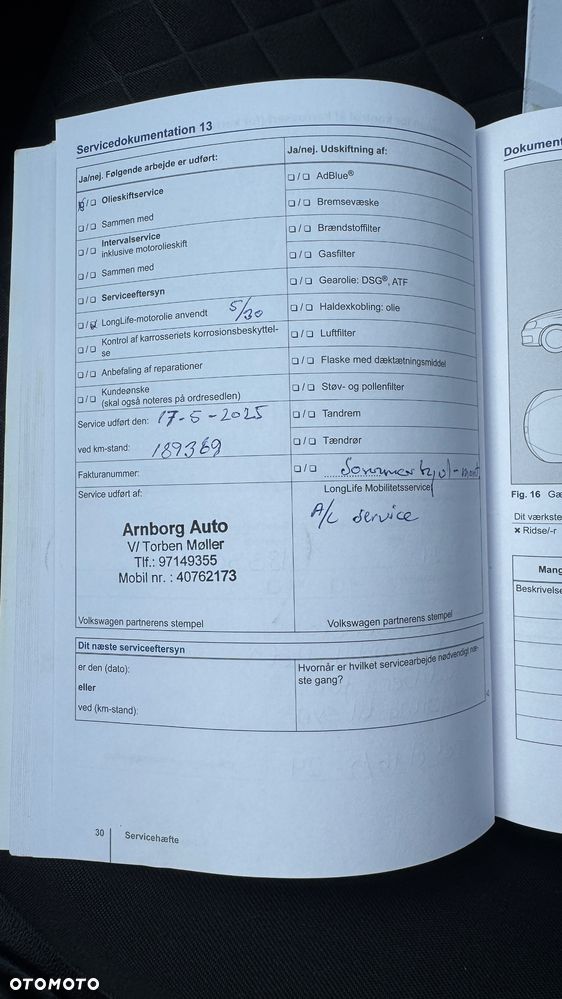 Servicedokumentation 13
Ja/nej. Følgende arbejde er udført:
❑/❑ Olieskiftservice
❑/❑ Sammen med
❑/❑ Intervalservice
inklusive motorolieskift
❑/❑ Sammen med
❑/❑ Serviceeftersyn
❑/❑ LongLife-motorolie anvendt 5/30
❑/❑ Kontrol af karrosseriets korrosionsbeskyttel-
se
❑/❑ Anbefaling af reparationer
❑/❑ Kundeønske
(skal også noteres på ordresedlen)
Service udført den: 17-5-2025
ved km-stand: 189369
Fakturanummer:
Service udført af:
Arnborg Auto
V/ Torben Møller
Tlf.: 97149355
Mobil nr. : 40762173
Volkswagen partnerens stempel
Ja/nej. Udskiftning af:
❑/❑ AdBlue®
❑/❑ Bremsevæske
❑/❑ Brændstoffilter
❑/❑ Gasfilter
❑/❑ Gearolie: DSG®, ATF
❑/❑ Haldexkobling: olie
❑/❑ Luftfilter
❑/❑ Flaske med dæktætningsmiddel
❑/❑ Støv- og pollenfilter
❑/❑ Tandrem
❑/❑ Tændrør
❑/❑ Sommerhjul-mont
LongLife Mobilitetsservice
A/C service
Volkswagen partnerens stempel
Dit næste serviceeftersyn
er den (dato):
eller
ved (km-stand):
Hvornår er hvilket servicearbejde nødvendigt næ-
ste gang?
30 Servicehæfte
Dokument
Fig. 16
Dit værkste
✖ Ridse/-r
Mang
Beskrivelse
OTOMOTO